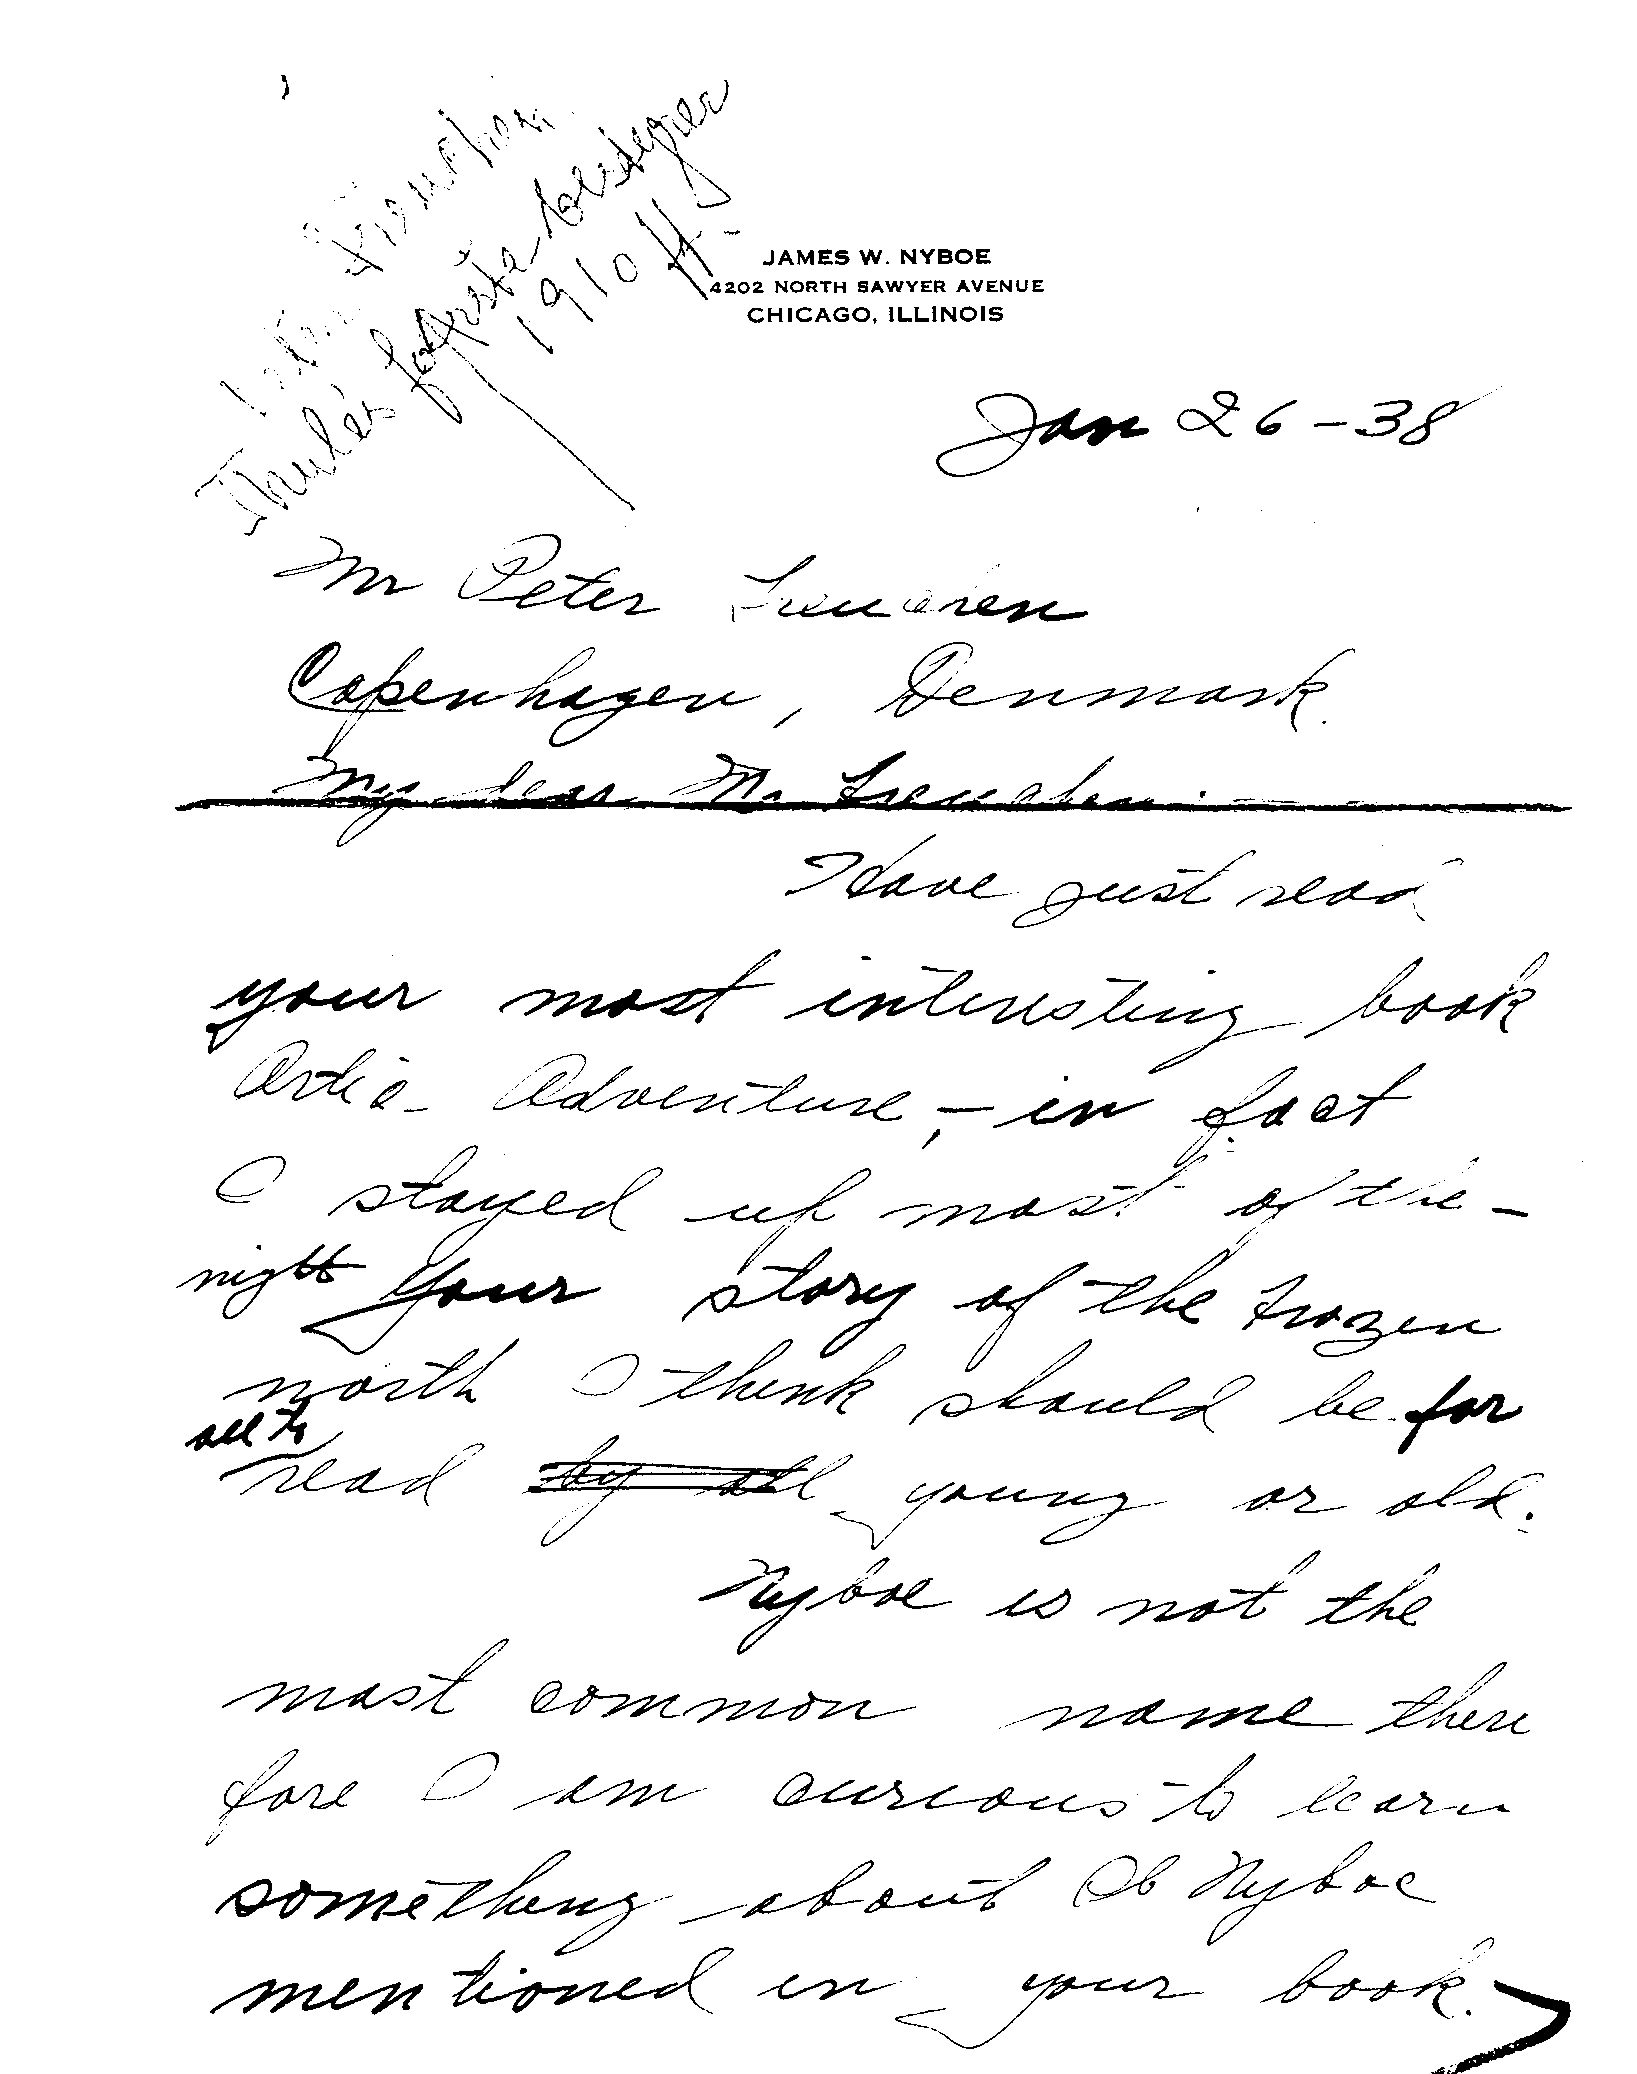 Peter Freuchen
Thule's første bestyrer
1910 ff.
JAMES W. NYBOE
4202 NORTH SAWYER AVENUE
CHICAGO, ILLINOIS
Jan 26-38
Mr Peter Freuchen
Copenhagen, Denmark.
My dear Mr Freuchen:
Have just read
your most interesting book
Artic Adventure, - in fact
I stayed up most of the
night your story of the frozen
north I think should be for
all to
read by all young or old.
Nyboe is not the
most common name there
fore I am curious to learn
something about Ob Nyboe
mentioned in your book.